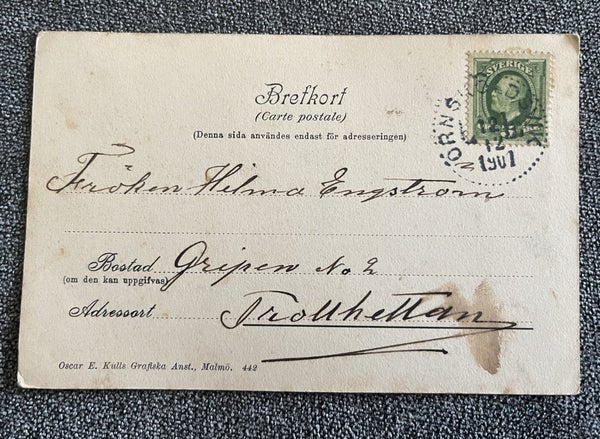 SVERIGE
Brefkort
(Carte postale)
(Denna sida användes endast för adresseringen)
12
1901
Fröken Hilma Engström
Bostad Gripen No 2
(om den kan uppgifvas)
Adressort Trollhettan
Oscar E. Kulls Grafiska Anst., Malmö. 442